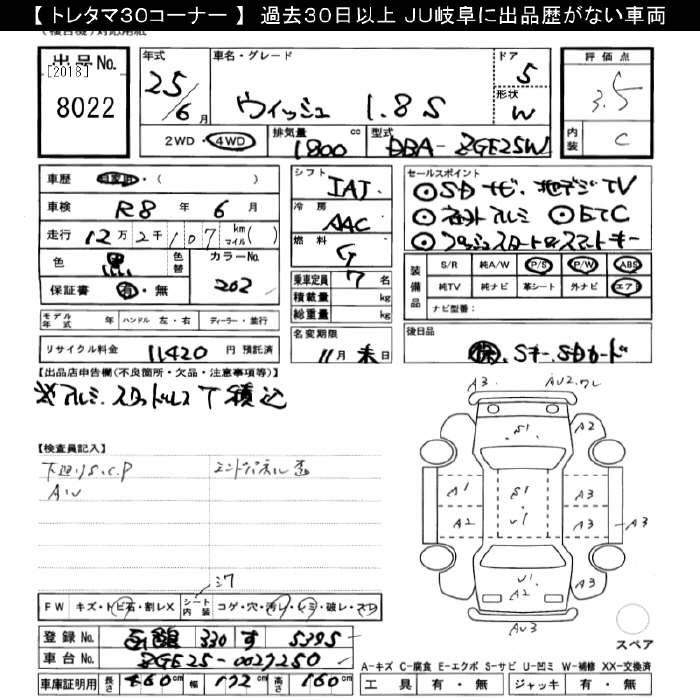 【 トレタマ30コーナー 】 過去30日以上 JU岐阜に出品歴がない車両
出品No. [2018] 8022
年式 25/6月
車名・グレード ウィッシュ 1.8S
ドア 5
形状 W
評価点 3.5
内装 C
2WD・4WD
排気量 1800 cc
型式 DBA-ZGE25W
車歴 自家用・( )
車検 R8年 6月
走行 12万2千107 km マイル( )
色 黒 色替
カラーNo. 202
保証書 有・無
シフト IAT
冷房 AAC
燃料 G
乗車定員 7名
積載量 kg
総重量 kg
セールスポイント
◎SDナビ、地デジTV
◎ネオトアルミ ◎ETC
◎プッシュスタート&スマートキー
装備品
S/R 純A/W P/S P/W ABS
純TV 純ナビ 革シート 外ナビ エアB
ナビ型番:
モデル年式 年 ハンドル 左・右 ディーラー・並行
リサイクル料金 11420 円 預託済
名変期限 11月末日
後日品 Sキー、SDカード
【出品店申告欄(不良箇所・欠品・注意事項等)】
※アルミ、スタッドレスT積込
【検査員記入】
下廻りS、C、P
AW
エンドパネル歪
シワ
A3 AU2、ワレ
S1 A2
A1 S1 A3
A2 U1 A3 A3
U1 A2
AU3
スペア
FW キズ・トビ石・割レX
シート内装 コゲ・穴・汚レ・シミ・破レ・スレ
登録No. 函館 330 す 5395
車台No. ZGE25-0027250
車庫証明用 長さ 460cm 幅 172cm 高さ 160cm
A-キズ C-腐食 E-エクボ S-サビ U-凹ミ W-補修 XX-交換済
工具 有・無 ジャッキ 有・無